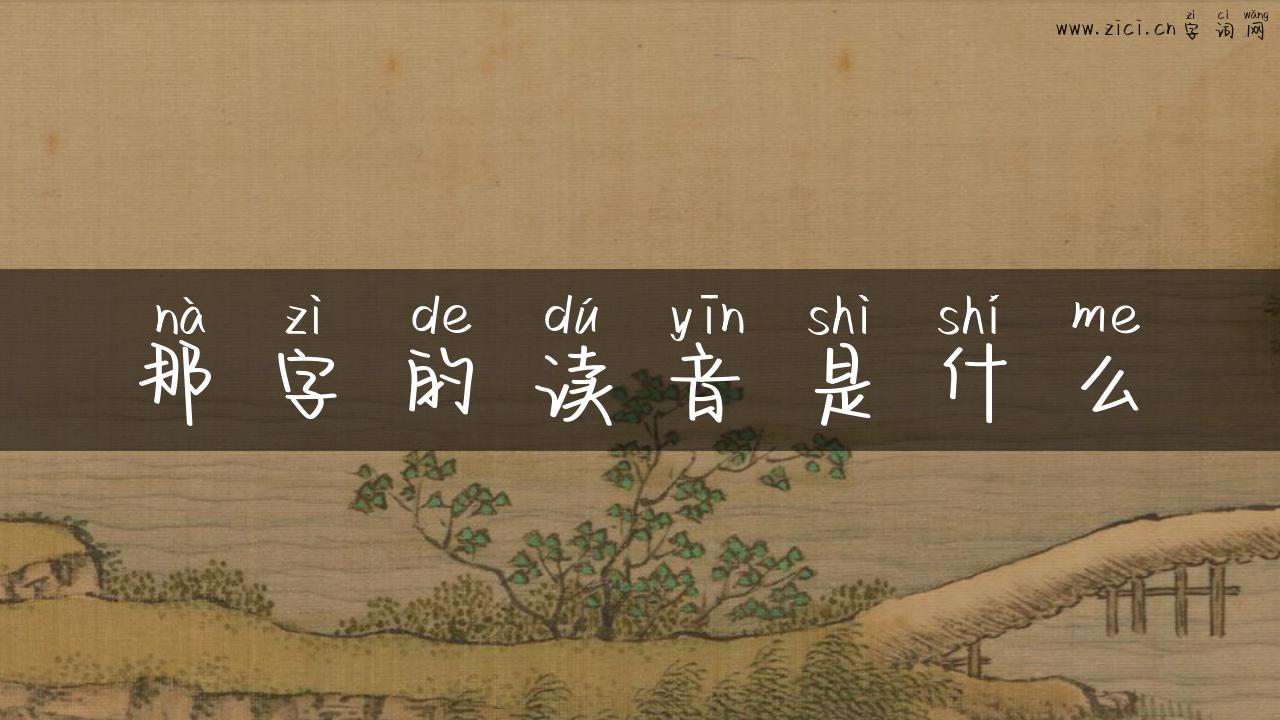 zì cí wǎng
www.zici.cn 字 词 网
nà zì de dú yīn shì shí me
那 字 的 读 音 是 什 么